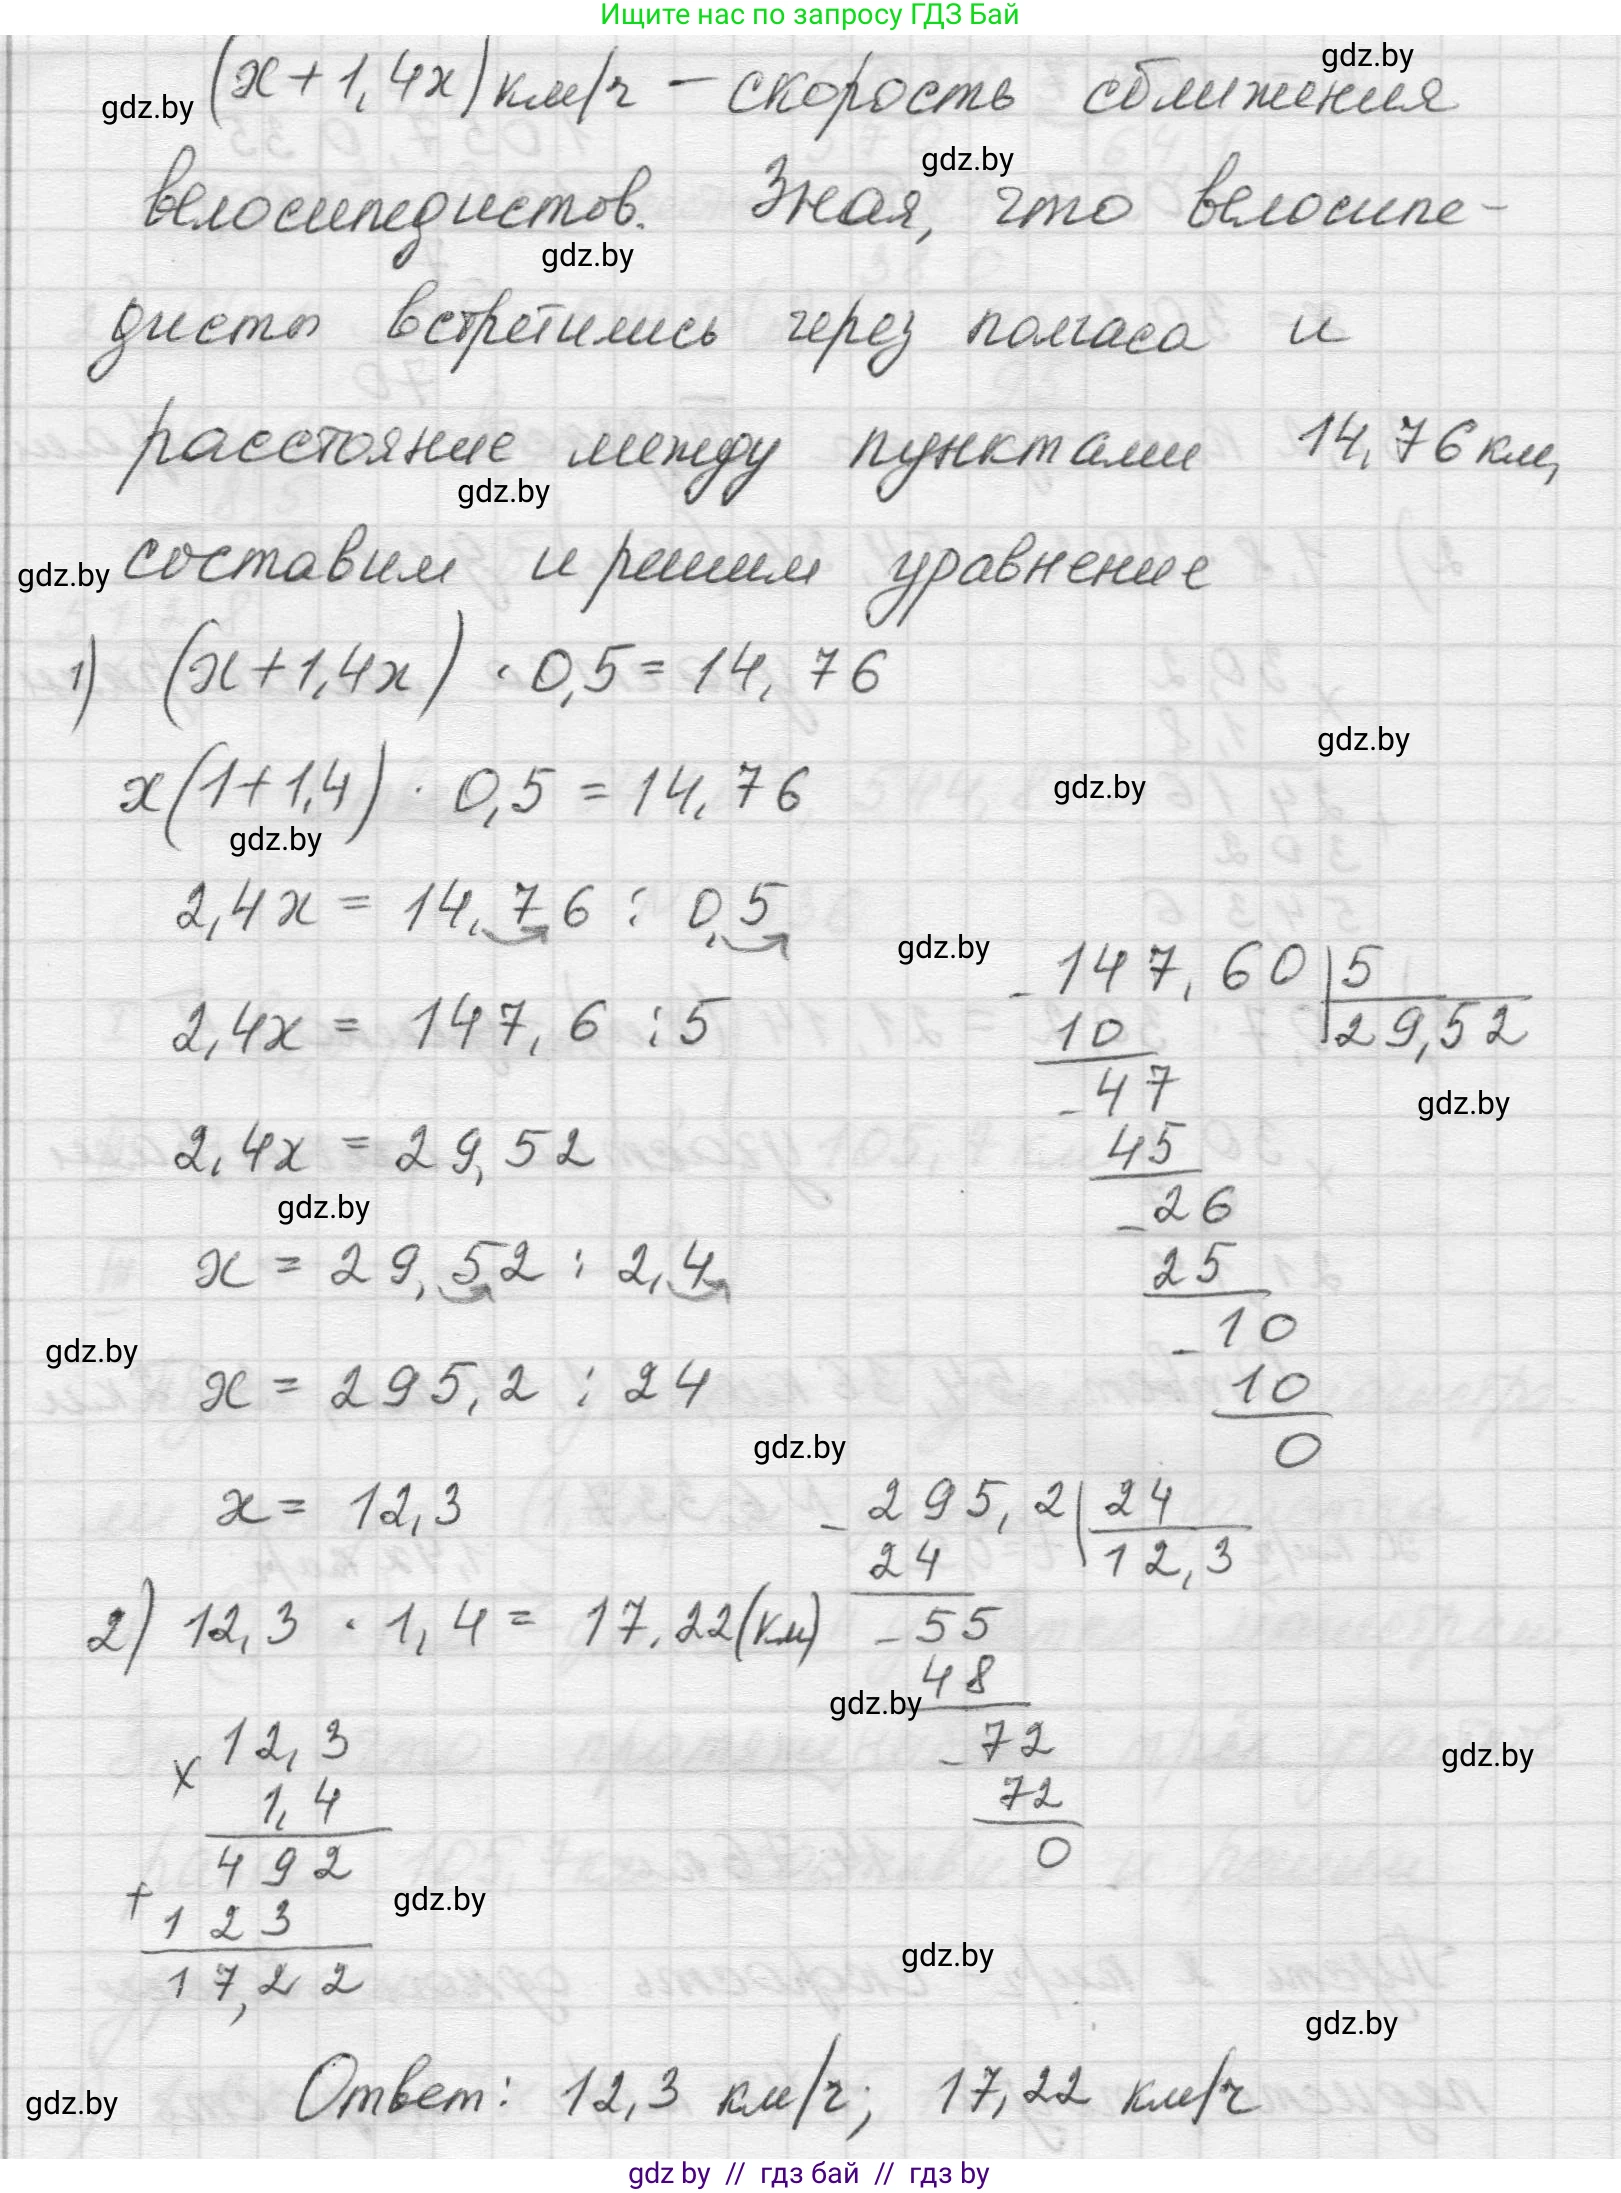 Ищите нас по запросу ГДЗ Бай
gdz.by
(x + 1,4x) км/ч – скорость сближения
gdz.by
gdz.by
велосипедистов. Зная, что велосипе-
gdz.by
дисты встретились через полчаса и
расстояние между пунктами 14,76 км,
gdz.by
gdz.by
составим и решим уравнение
1) (x + 1,4x) · 0,5 = 14,76
gdz.by
x(1 + 1,4) · 0,5 = 14,76
gdz.by
gdz.by
2,4x = 14,76 : 0,5
gdz.by
147,60 | 5
- 10 29,52
2,4x = 147,6 : 5
- 47
gdz.by
45
2,4x = 29,52
- 26
gdz.by
25
x = 29,52 : 2,4
- 10
gdz.by
10
x = 295,2 : 24
0
gdz.by
x = 12,3
- 295,2 | 24
24 12,3
2) 12,3 · 1,4 = 17,22 (км)
- 55
48
gdz.by
- 72
gdz.by
72
0
x 12,3
1,4
492
+ 123
gdz.by
17,22
gdz.by
gdz.by
Ответ: 12,3 км/ч; 17,22 км/ч
gdz.by
gdz by // гдз бай // гдз by